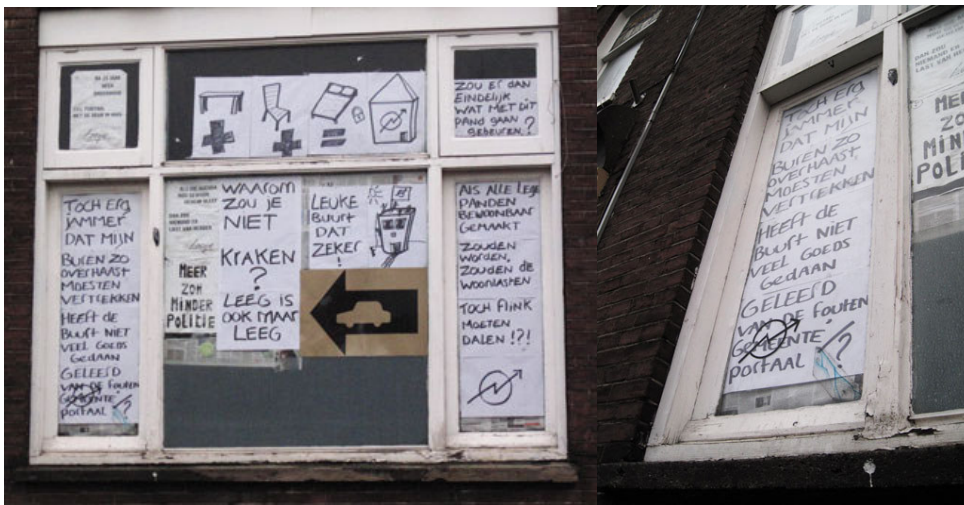 ZOU ER DAN
EINDELIJK
WAT MET DIT
PAND GAAN
GEBEUREN?
TOCH ERG
JAMMER
DAT MIJN
BUREN ZO
OVERHAAST
MOESTEN
VERTREKKEN
HEEFT DE
BUURT NIET
VEEL GOEDS
GEDAAN
GELEERD
VAN DE FOUTEN
GEMEENTE
PORTAAL?
DAN ZOU
NIEMAND ER
LAST VAN HEBBEN
MEER
ZON
MINDER
POLITIE
WAAROM
ZOU JE
NIET
KRAKEN
?
LEEG IS
OOK MAAR
LEEG
LEUKE
BUURT
DAT
ZEKER
!
ALS ALLE LEGE
PANDEN
BEWOONBAAR
GEMAAKT
ZOUDEN
WORDEN,
ZOUDEN DE
WOONLASTEN
TOCH FLINK
MOETEN
DALEN!?!
TOCH ERG
JAMMER
DAT MIJN
BUREN ZO
OVERHAAST
MOESTEN
VERTREKKEN
HEEFT DE
BUURT NIET
VEEL GOEDS
GEDAAN
GELEERD
VAN DE FOUTEN
GEMEENTE
PORTAAL?
DAN ZOU
NIEMAND ER
LAST VAN HEBBEN
MEER
ZO
MINDE
POLIT